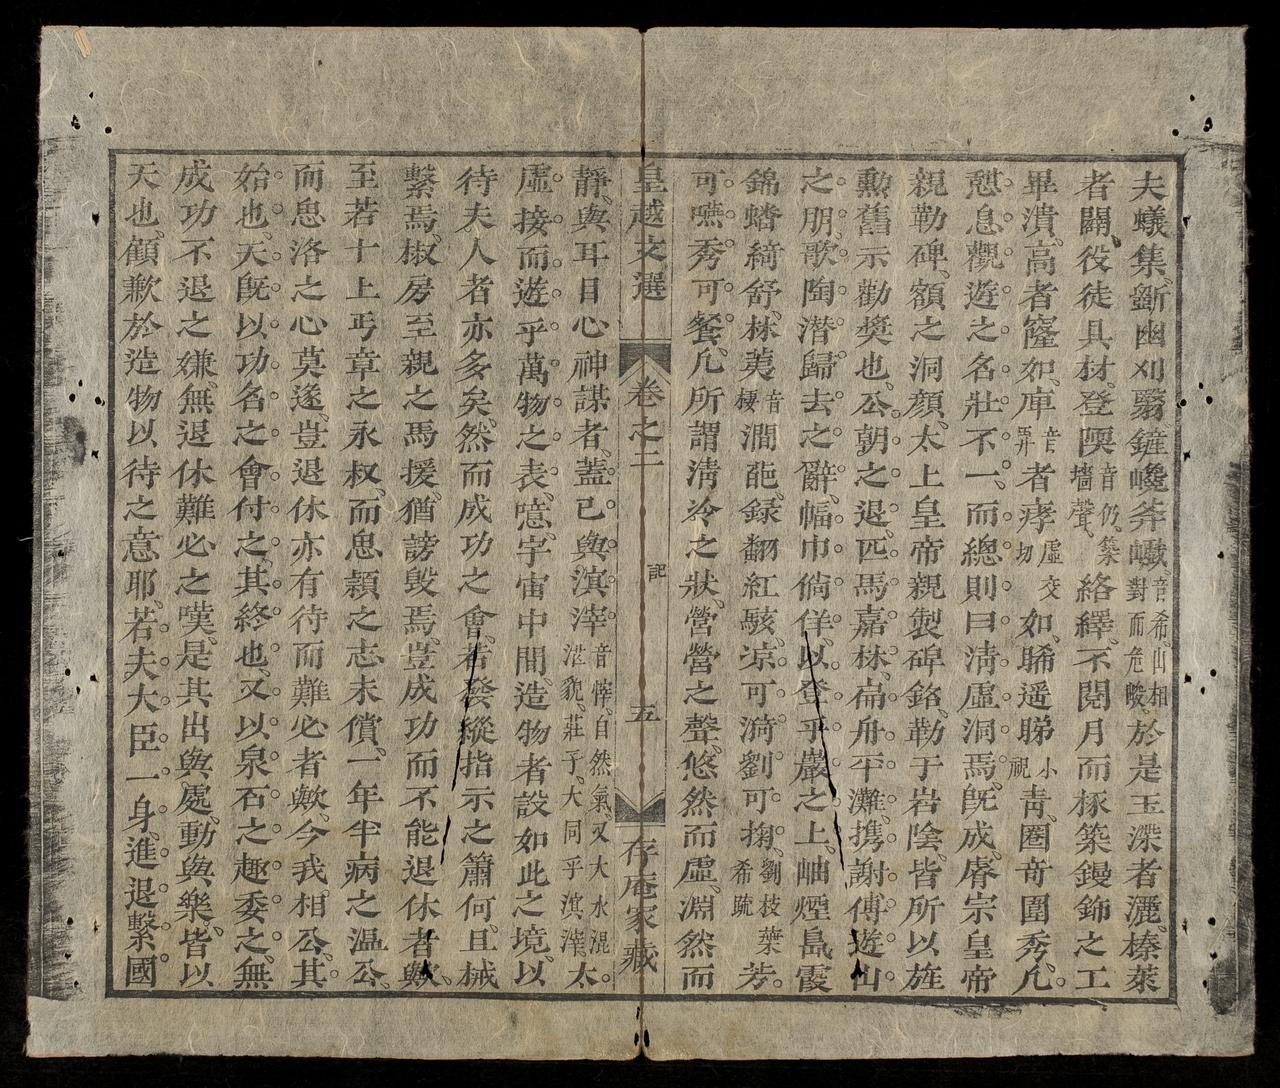 夫蟻集斷幽刈翳鏟巉斧巇音希山相對而危㠔於是玉深者灑榛萊
者闢役徒具材登陾音仍築墻聲絡繹不閱月而椓築鏝飾之工
畢潰高者窿如庳音婢者㾭虛交切如睎遥睇小視青圈奇圍秀凢
憇息觀遊之名壯不一而總則曰清虛洞焉旣成睿宗皇帝
親勒碑額之洞顔太上皇帝親製碑銘勒于岩陰皆所以旌
勲舊示勸奬也公朝之退匹馬嘉林扁舟平灘携謝傅遊山
之朋歌陶潛歸去之辭幅巾倘佯以登乎巖之上岫煙島霞
錦蟠綺舒林荑音棲澗葩録翻紅駭凉可漪劉可掬劉枝葉希䟽芳
可嚥秀可餐凢所謂淸冷之狀營營之聲悠然而虛淵然而
皇越文選 卷之二 記 五 存庵家藏
靜與耳目心神謀者蓋已與溟涬音悻自然氣又大水混茫貌莊子大同乎溟涬太
虛接而遊乎萬物之表噫宇宙中間造物者設如此之境以
待夫人者亦多矣然而成功之會若發縱指示之簫何且械
繫焉椒房至親之馬援猶謗毁焉豈成功而不能退休者歟
至若十上丐章之永叔而思頴之志未償一年半病之温公
而思洛之心莫遂豈退休亦有待而難必者歟今我相公其
始也天旣以功名之會付之其終也又以泉石之趣委之無
成功不退之嫌無退休難必之嘆是其出與處動與樂皆以
天也顧歉於造物以待之意耶若夫大臣一身進退繫國